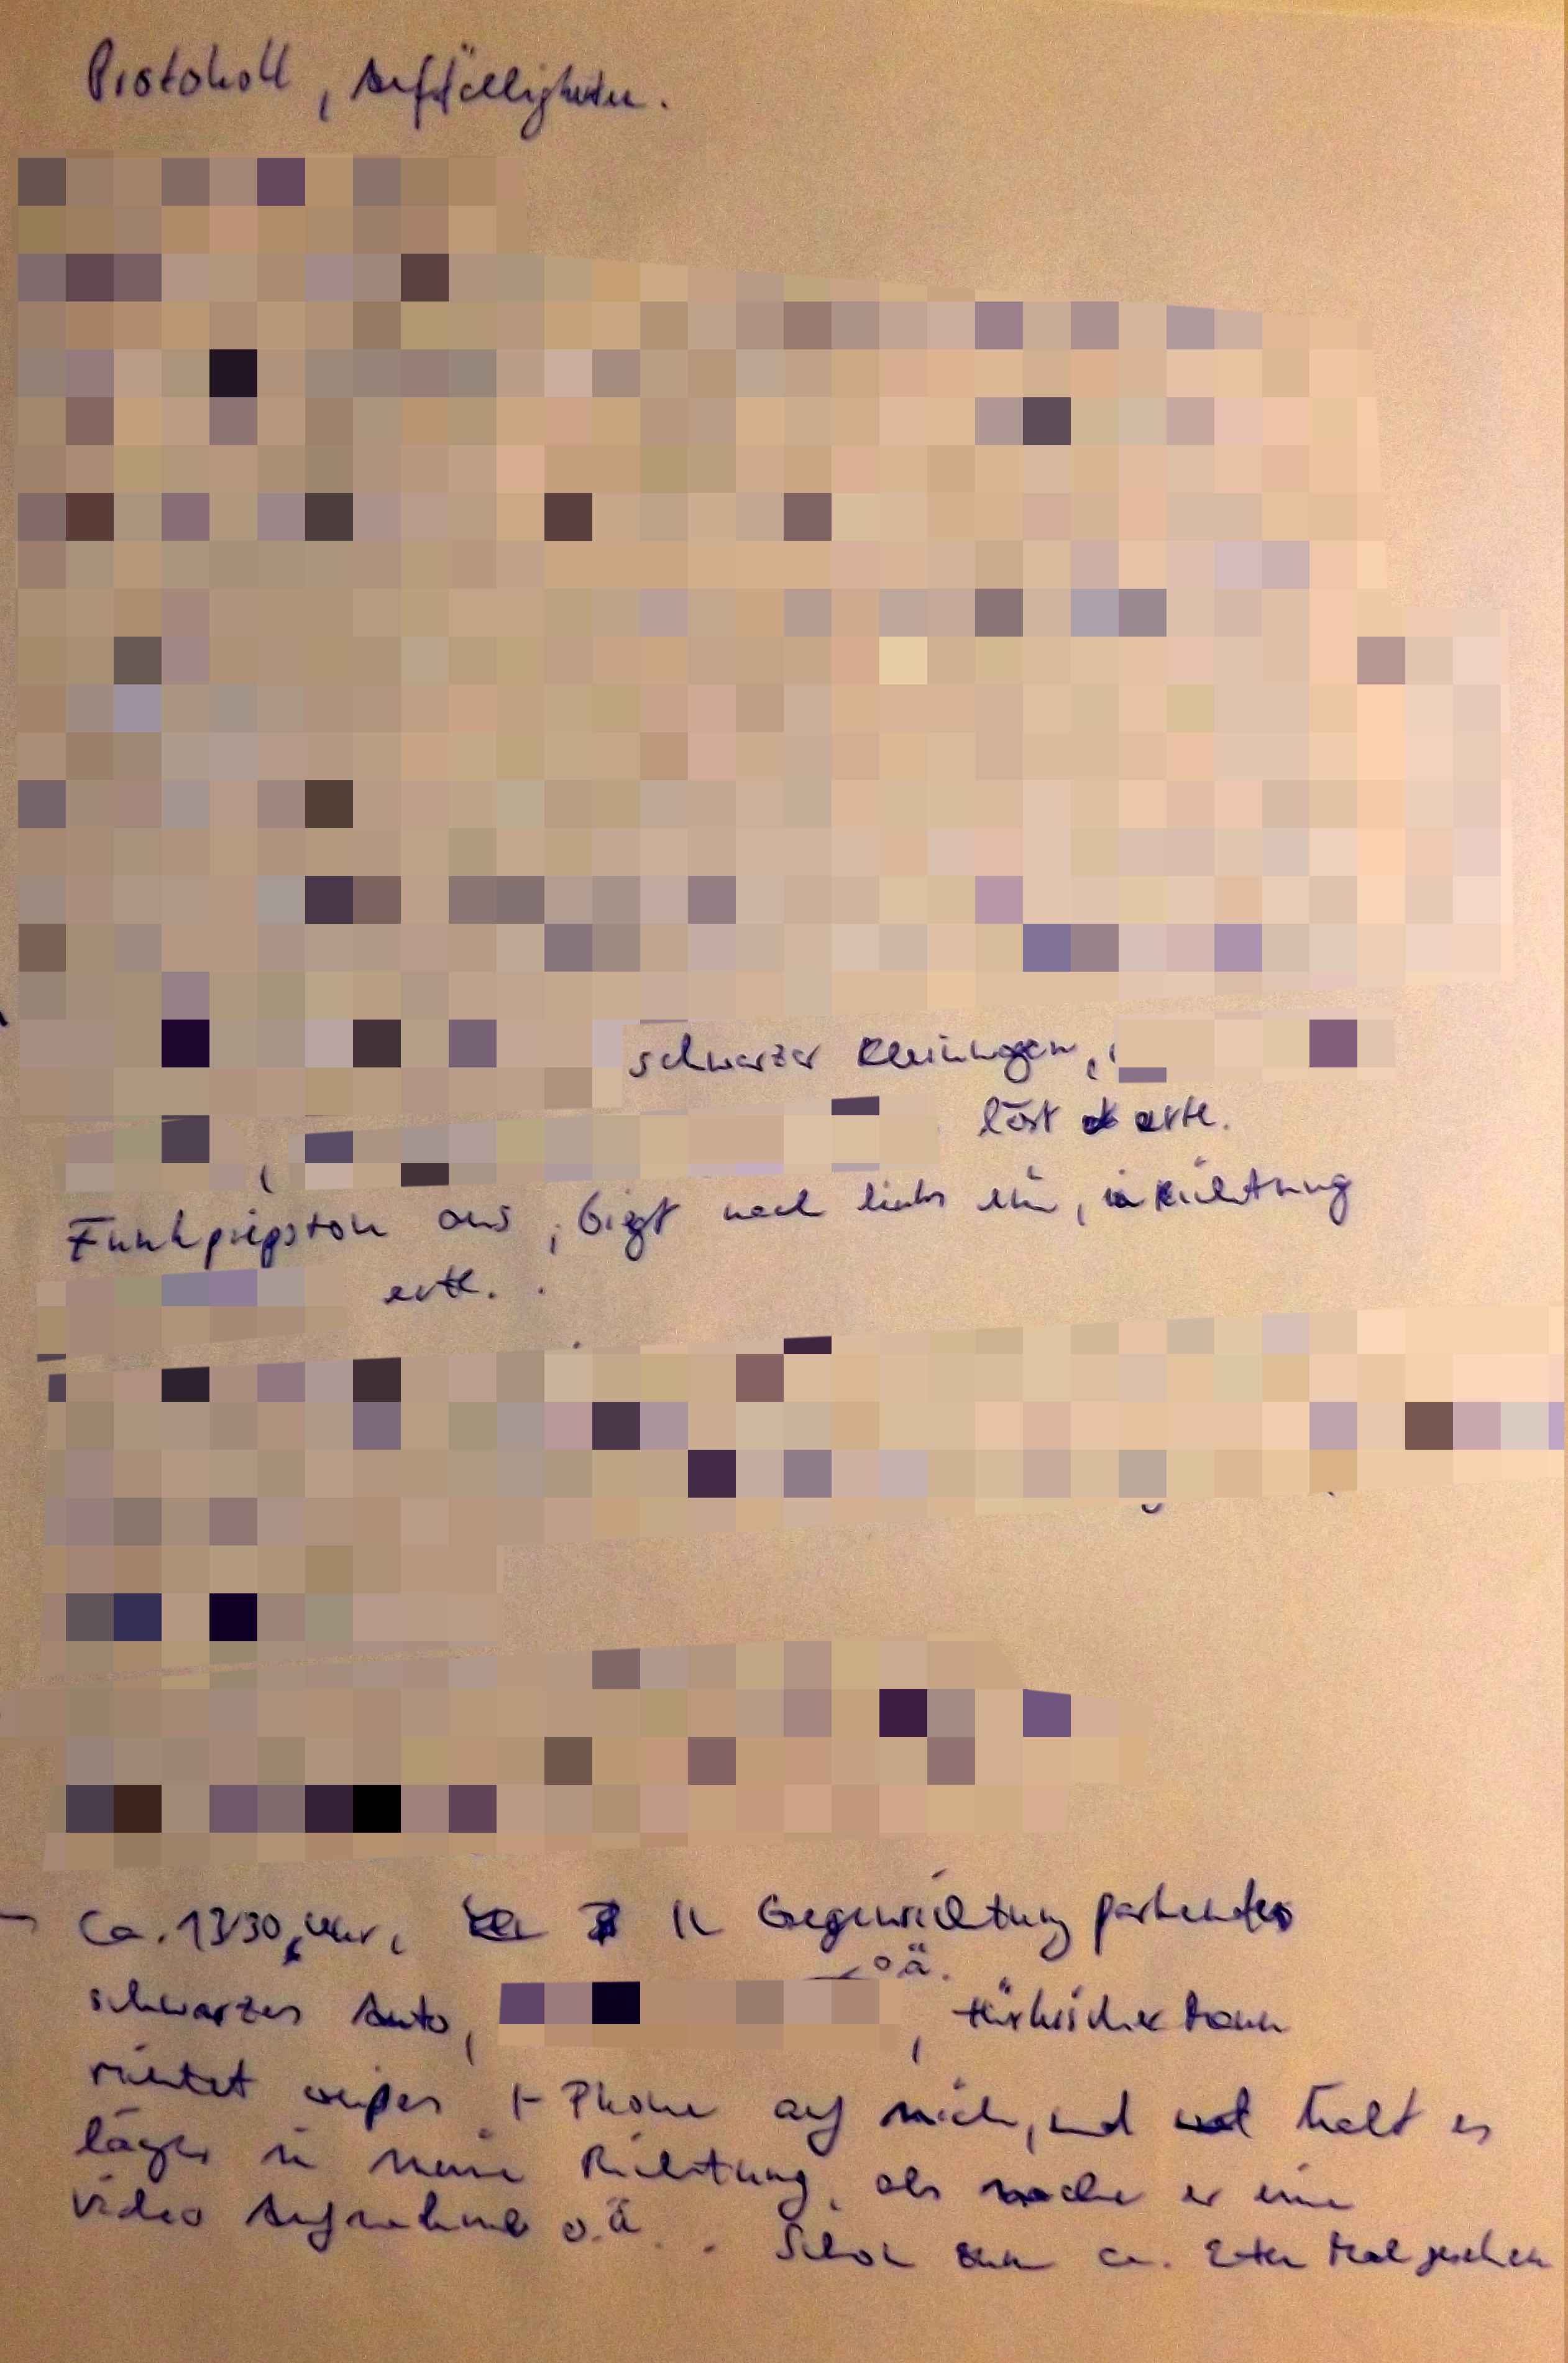 Protokoll, Auffälligkeiten.
schwarzer Kleinwagen,
löst evtl.
Funkpiepston aus, biegt nach links ein, in Richtung
evtl.
Ca. 13:30 Uhr, Gegenrichtung parkendes
o.ä.
schwarzes Auto, , türkischer Mann
richtet weißes I-Phone auf mich, und hält es
länger in meine Richtung, als mache er eine
Video Aufnahme o.ä. . Schon zum ca. 2ten Mal gesehen